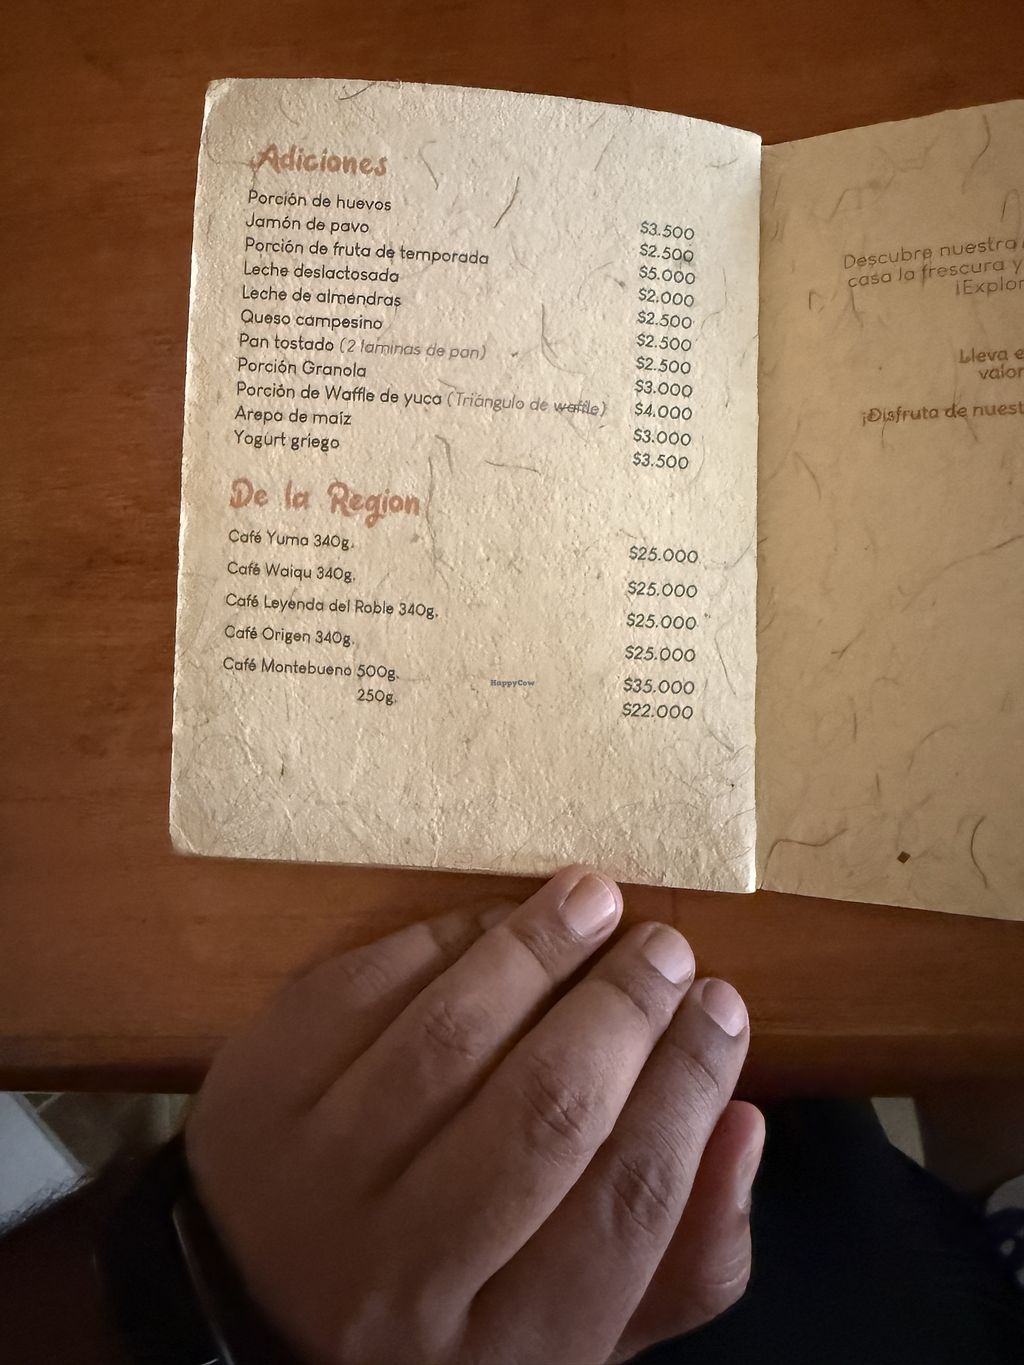 Adiciones
Porción de huevos $3.500
Jamón de pavo $2.500
Porción de fruta de temporada $5.000
Leche deslactosada $2.000
Leche de almendras $2.500
Queso campesino $2.500
Pan tostado (2 laminas de pan) $2.500
Porción Granola $3.000
Porción de Waffle de yuca (Triángulo de waffle) $4.000
Arepa de maíz $3.000
Yogurt griego $3.500
De la Region
Café Yuma 340g. $25.000
Café Waiqu 340g. $25.000
Café Leyenda del Roble 340g. $25.000
Café Origen 340g. $25.000
Café Montebueno 500g. $35.000
250g. $22.000
HappyCow
Descubre nuestra
casa la frescura y
¡Explor
Lleva e
valor
¡Disfruta de nuest